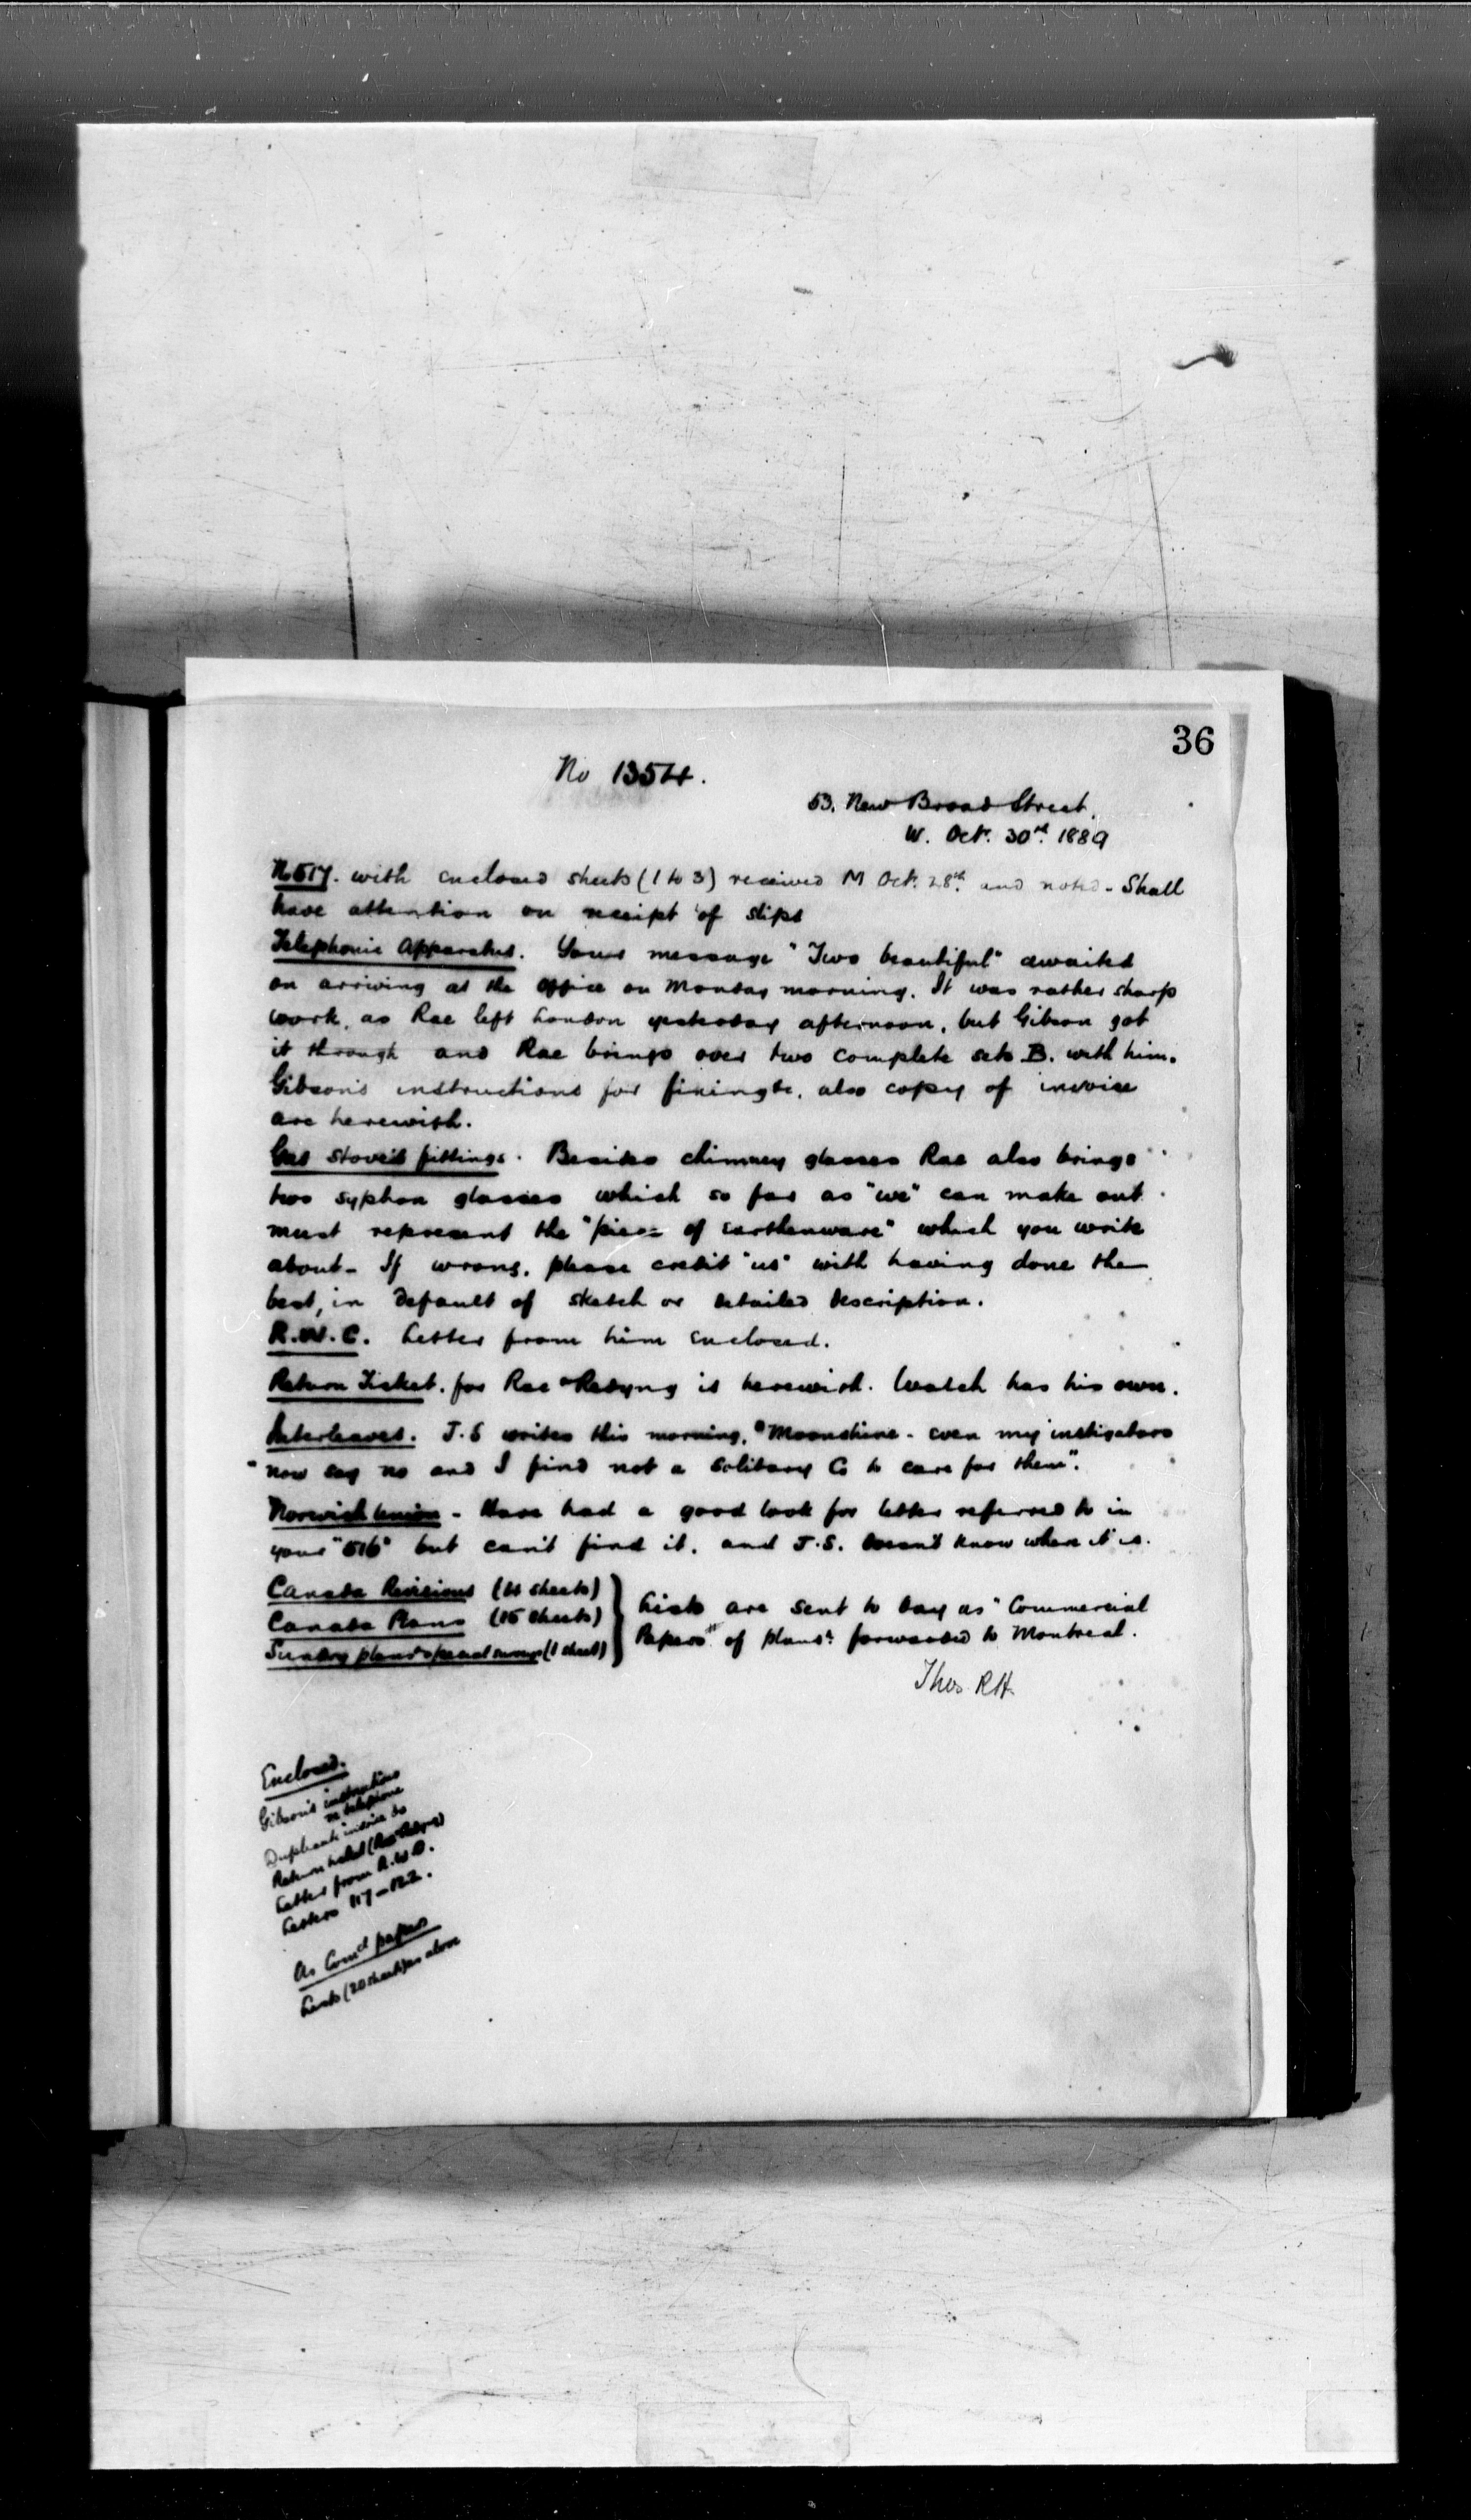 36
No 1354.
53. New Broad Street.
W. Oct. 30th. 1889
No517. with enclosed sheets (1 to 3) received M Oct. 28th. and noted - Shall
have attention on receipt of slips
Telephonic Apparatus. Your message "Two beautiful" awaited
on arriving at the office on Monday morning. It was rather sharp
work, as Rae left London yesterday afternoon, but Gibson got
it through and Rae brings over two complete sets B. with him.
Gibson's instructions for fixing &c, also copy of invoice
are herewith.
Gas Stoves fittings. Besides chimney glasses Rae also brings
two syphon glasses which so far as "we" can make out
must represent the "piece of earthenware" which you write
about - If wrong, please credit "us" with having done the
best, in default of sketch or detailed description.
R.W.C. Letter from him enclosed.
Return Ticket, for Rae & is herewith. Watch has his own.
Interleaves. J.S writes this morning, "Moonshine - even my instigators
"now say no and I find not a solitary Co to care for them".
Norwich Union - Have had a good look for letter referred to in
your "516" but can't find it, and J.S. doesn't know where it is.
Canada Revisions (4 sheets)
Canada Plans (15 sheets)
Sundry plans & special surveys (1 sheet)
Lists are sent to day as "Commercial
Papers" of plans &c forwarded to Montreal.
Thos. R.H.
Enclosed.
Gibson's instructions
re telephone
Duplicate invoice do
Return ticket (Rae &
Letter from R.W.C.
Letters 117-122.
As Comcl papers
Lists (20 sheets) as above